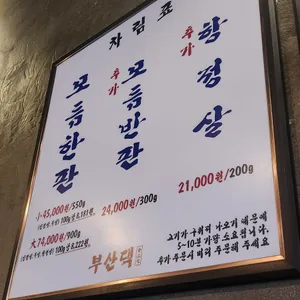 차림표
모듬한판
小-45,000원/550g
100g당 8,181원
大 74,000원/900g
100g당 8,222원
추가
모듬반판
24,000원/300g
추가
항정살
21,000원/200g
부산댁
고기가 구워져 나오기 때문에
5~10분 가량 소요됩니다.
추가 주문시 미리 주문해 주세요